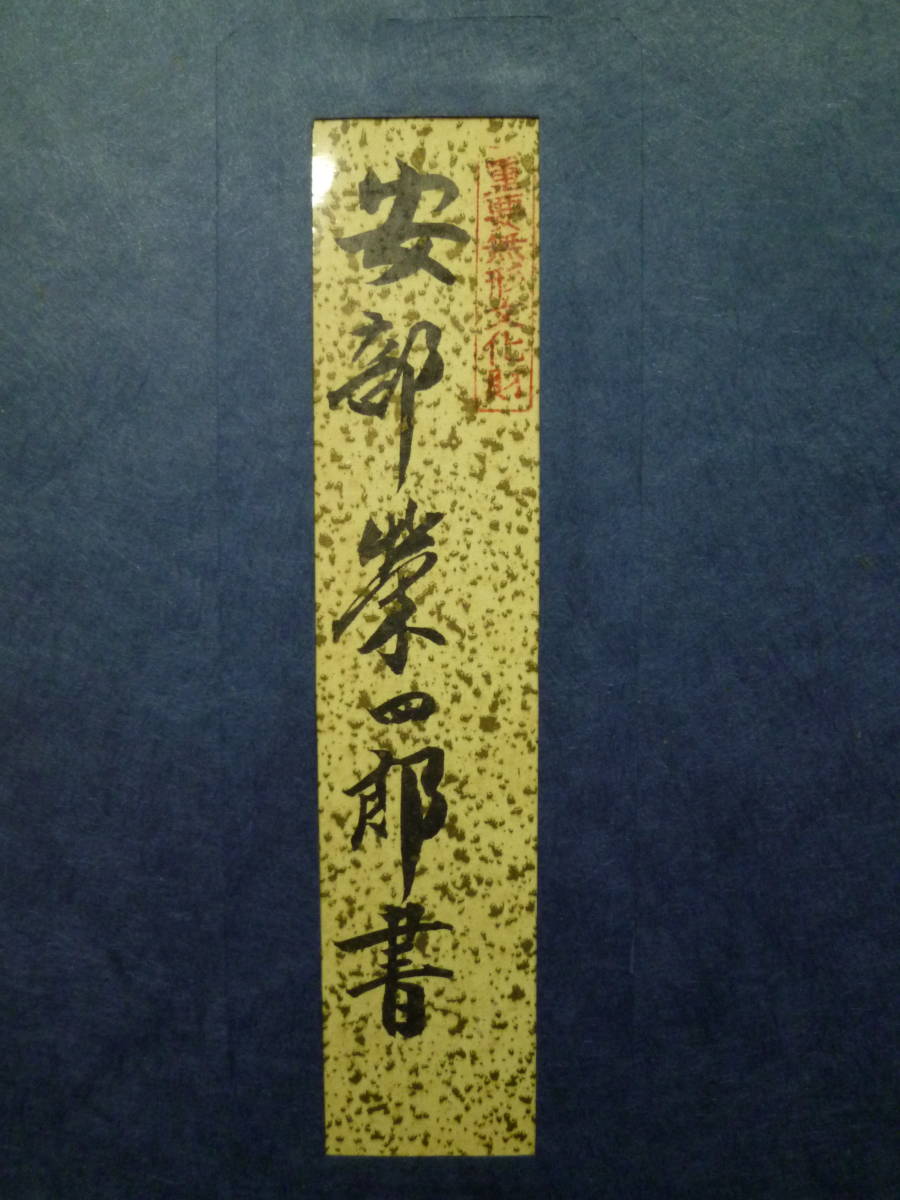 重要無形文化財
安部榮四郎書